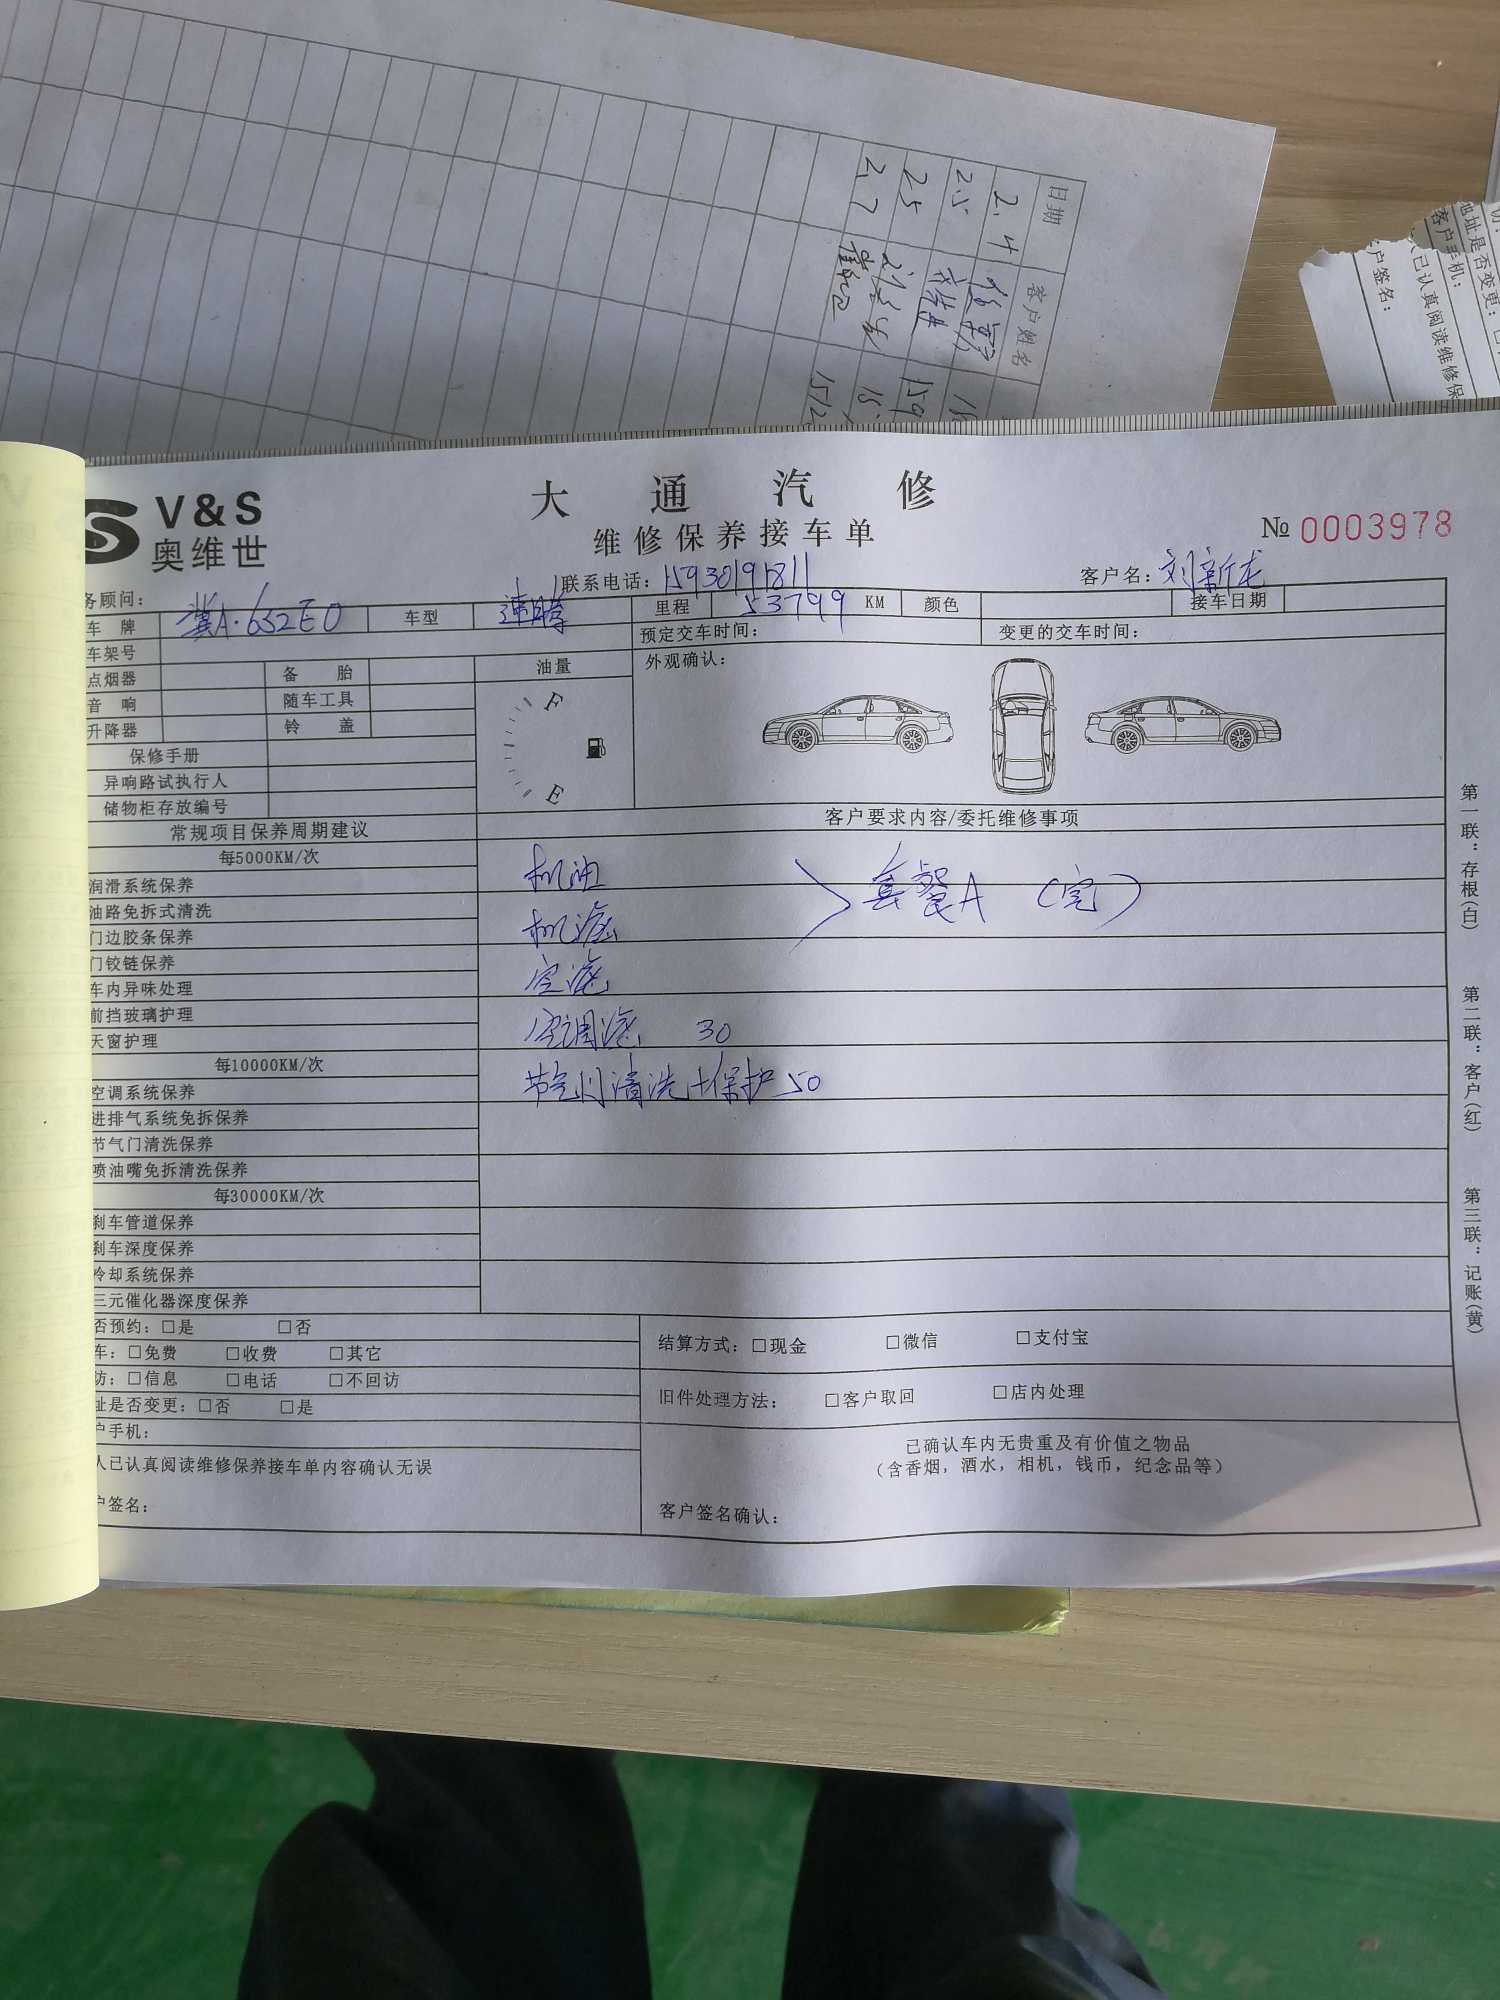 日期
客户姓名
2.4
2.5
2.5
2.7
159
15
1512
地址是否变更：
客户手机：
已认真阅读维修保
户签名：
V&S
奥维世
大通汽修
维修保养接车单
№ 0003978
务顾问：
联系电话：15930191811
客户名：刘新龙
车 牌 冀A·652E0 车型 速腾 里程 53799 KM 颜色 接车日期
车架号
预定交车时间： 变更的交车时间：
点烟器 备 胎 油量 外观确认：
音 响 随车工具 F
升降器 铃 盖
保修手册
异响路试执行人
储物柜存放编号 E
常规项目保养周期建议 客户要求内容/委托维修事项
每5000KM/次
润滑系统保养 机油
油路免拆式清洗 套餐A （完）
门边胶条保养 机滤
门铰链保养
车内异味处理 空滤
前挡玻璃护理
天窗护理 空调滤 30
每10000KM/次
空调系统保养 节气门清洗+保护50
进排气系统免拆保养
节气门清洗保养
喷油嘴免拆清洗保养
每30000KM/次
刹车管道保养
刹车深度保养
冷却系统保养
三元催化器深度保养
否预约：□是 □否
车：□免费 □收费 □其它
访：□信息 □电话 □不回访
址是否变更：□否 □是
户手机：
人已认真阅读维修保养接车单内容确认无误
户签名：
结算方式：□现金 □微信 □支付宝
旧件处理方法： □客户取回 □店内处理
已确认车内无贵重及有价值之物品
（含香烟，酒水，相机，钱币，纪念品等）
客户签名确认：
第一联：存根(白)
第二联：客户(红)
第三联：记账(黄)